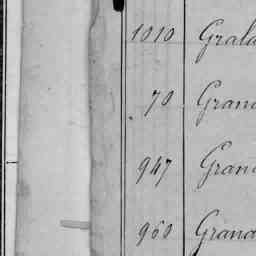 1010 Grala
70 Gran
947 Gran
960 Grana